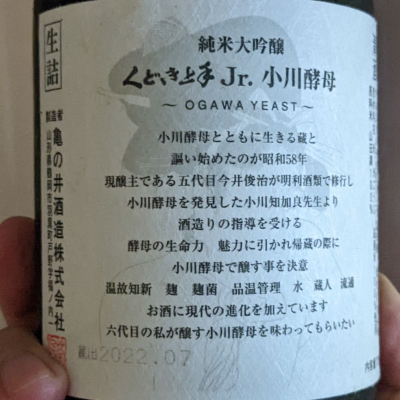 生詰
純米大吟醸
くどき上手 Jr. 小川酵母
～ OGAWA YEAST ～
小川酵母とともに生きる蔵と
謳い始めたのが昭和58年
現醸主である五代目今井俊治が明利酒類で修行し
小川酵母を発見した小川知加良先生より
酒造りの指導を受ける
酵母の生命力　魅力に引かれ帰蔵の際に
小川酵母で醸す事を決意
温故知新　麹　麹菌　品温管理　水　蔵人　流通
お酒に現代の進化を加えています
六代目の私が醸す小川酵母を味わってもらいたい
製造者
亀の井酒造株式会社
山形県鶴岡市羽黒町戸野字福ノ内一
蔵出2022.07